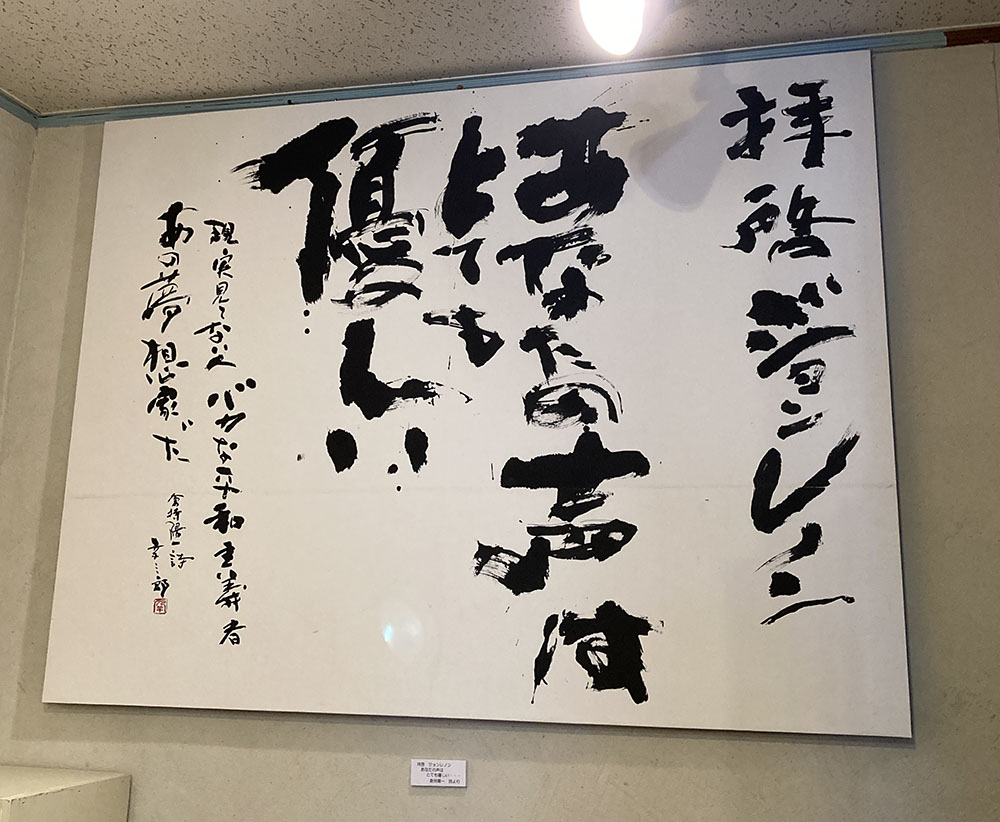 拝啓ジョンレノン
あなたの声は
とても
優しい
現実見てない人 バカな平和主義者
あの夢想家だ
倉持陽一詩
拝啓 ジョンレノン
あなたの声は
とても優しい・・・
倉持陽一 詩より